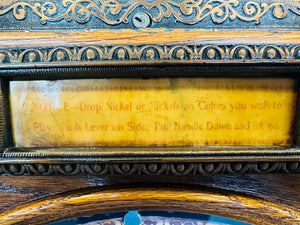 NOTICE--Drop Nickel or Nickels on Colors you wish to
Play. Push Lever on Side. Pull Handle Down and let go.